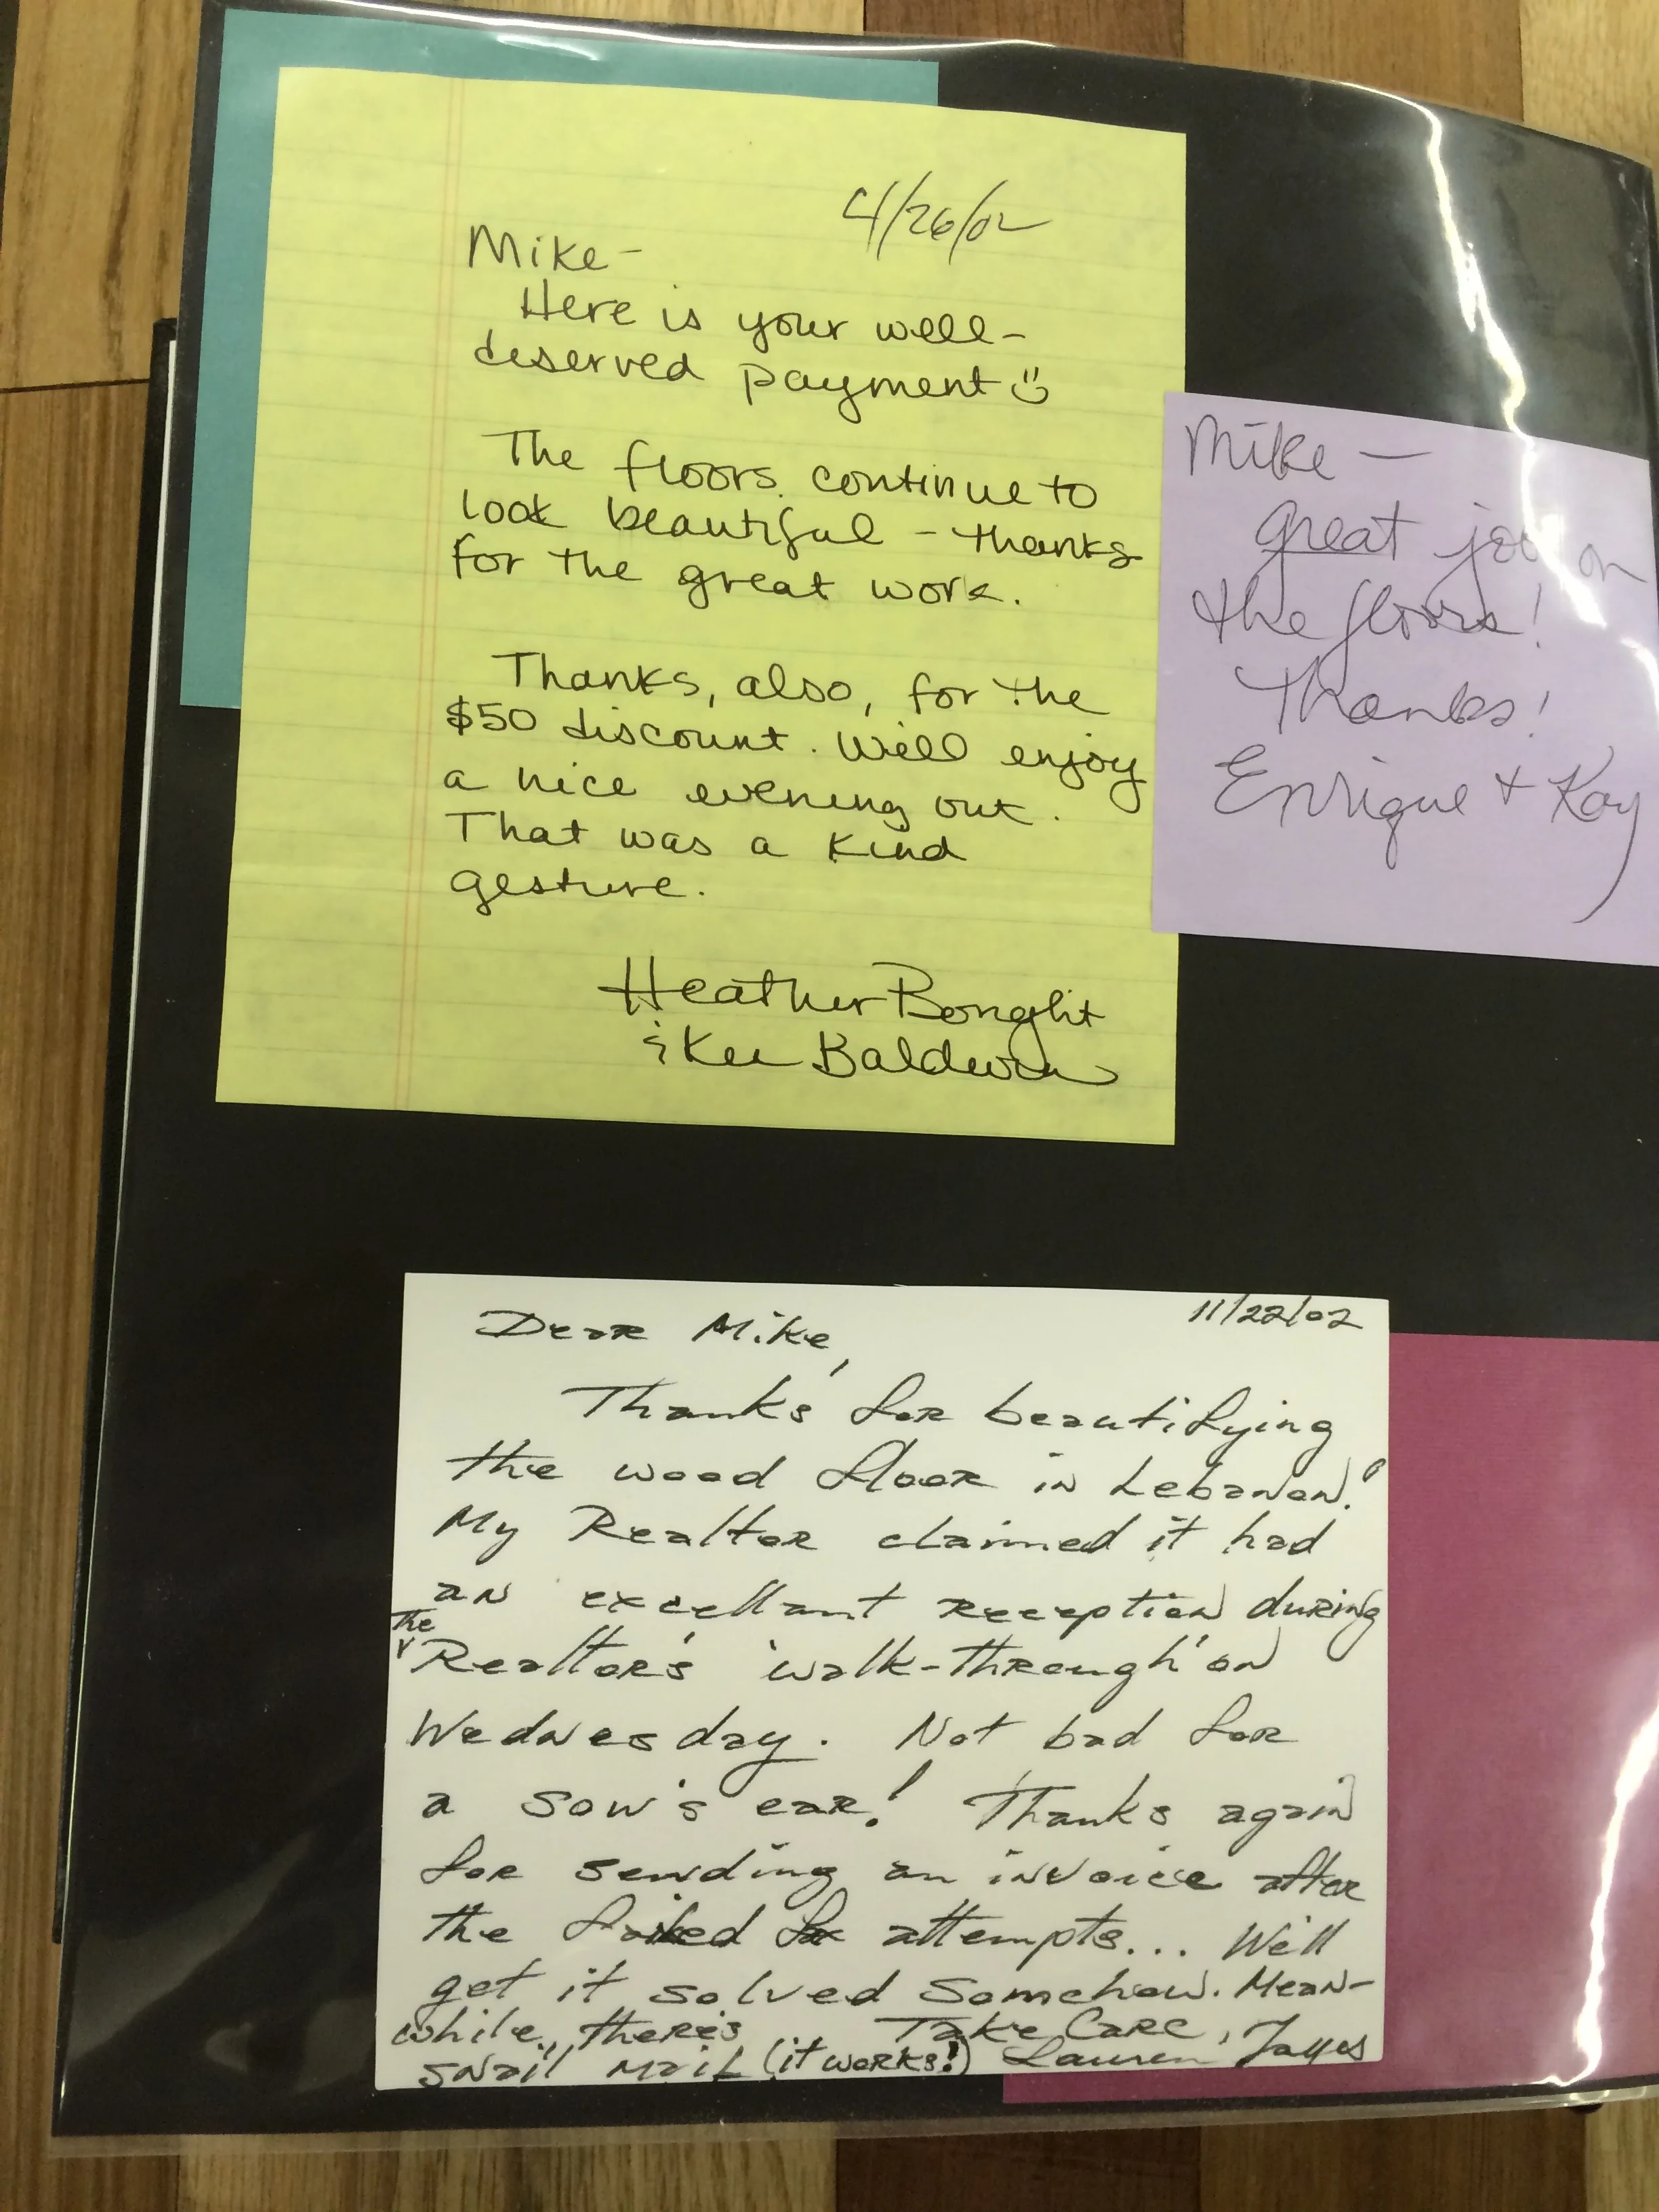 4/26/02
Mike-
Here is your well-
deserved payment
The floors continue to
look beautiful - thanks
for the great work.
Thanks, also, for the
$50 discount. We'll enjoy
a nice evening out.
That was a kind
gesture.
Heather
& Baldwin
Mike —
great job on
the floors!
Thanks!
Enrique + Kay
11/22/02
Dear Mike,
Thanks for beautifying
the wood floor in Lebanon!
My Realtor claimed it had
an excellant reception during
the
Realtor's 'walk-through' on
Wednesday. Not bad for
a sow's ear! Thanks again
for sending an invoice after
the failed fax attempts... We'll
get it solved somehow. Mean-
while, there's Take Care,
snail mail (it works!) Lauren